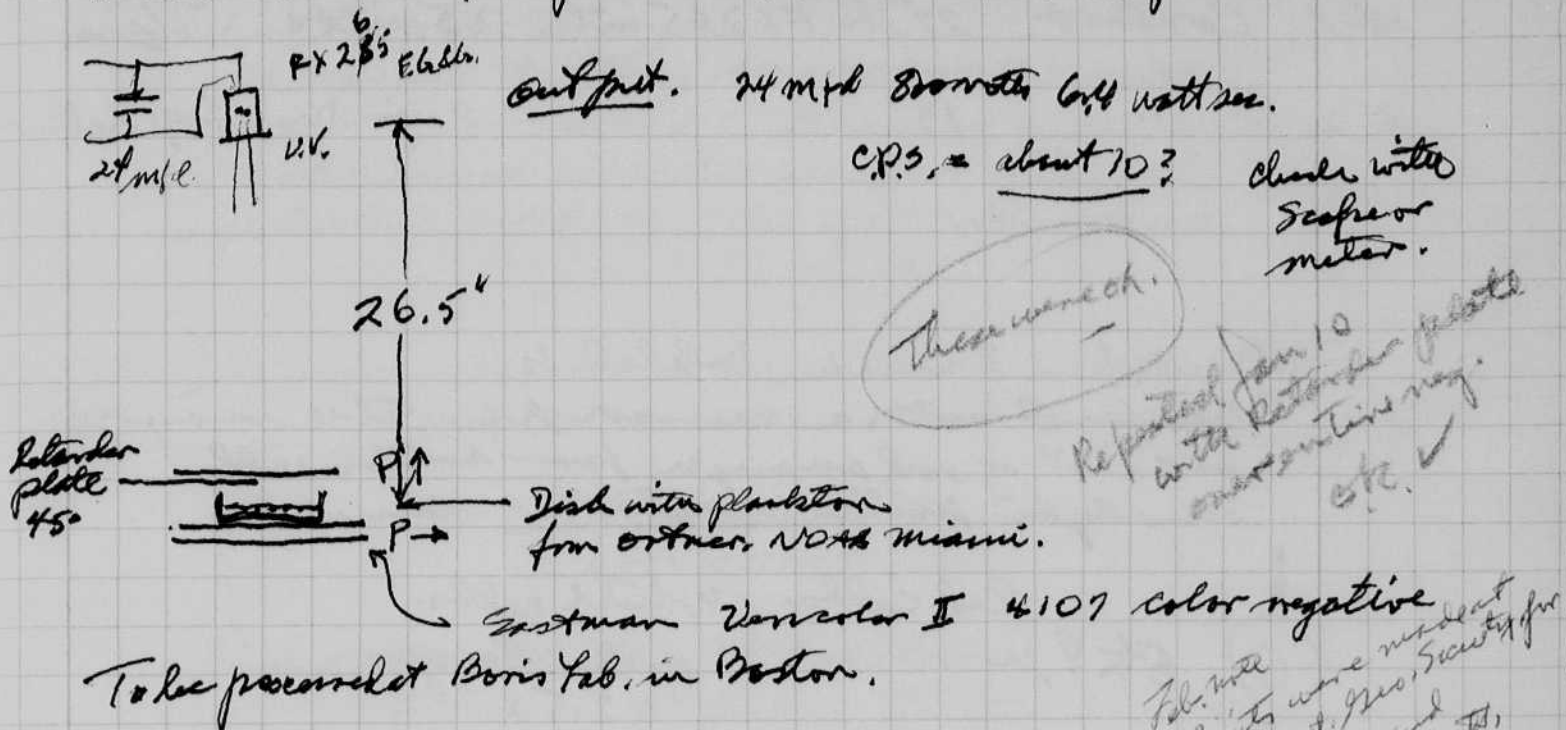 FX 265 EG&G.
U.V.
24 mfd.
output. 24 mfd 800 volts 6.4 watt sec.
C.P.S. = about 10? check with
scope or
meter.
26.5"
These were ok.
Repeated Jan 10
with Retarder plate
on sensitive neg.
ok. ✓
Retarder
plate
45°
P
P →
Dish with plankton
from Ortner. NOAA Miami.
Eastman Vericolor II 4107 color negative
To be processed at Boris Lab. in Boston.
Feb. note
were made at
Geo. Society for